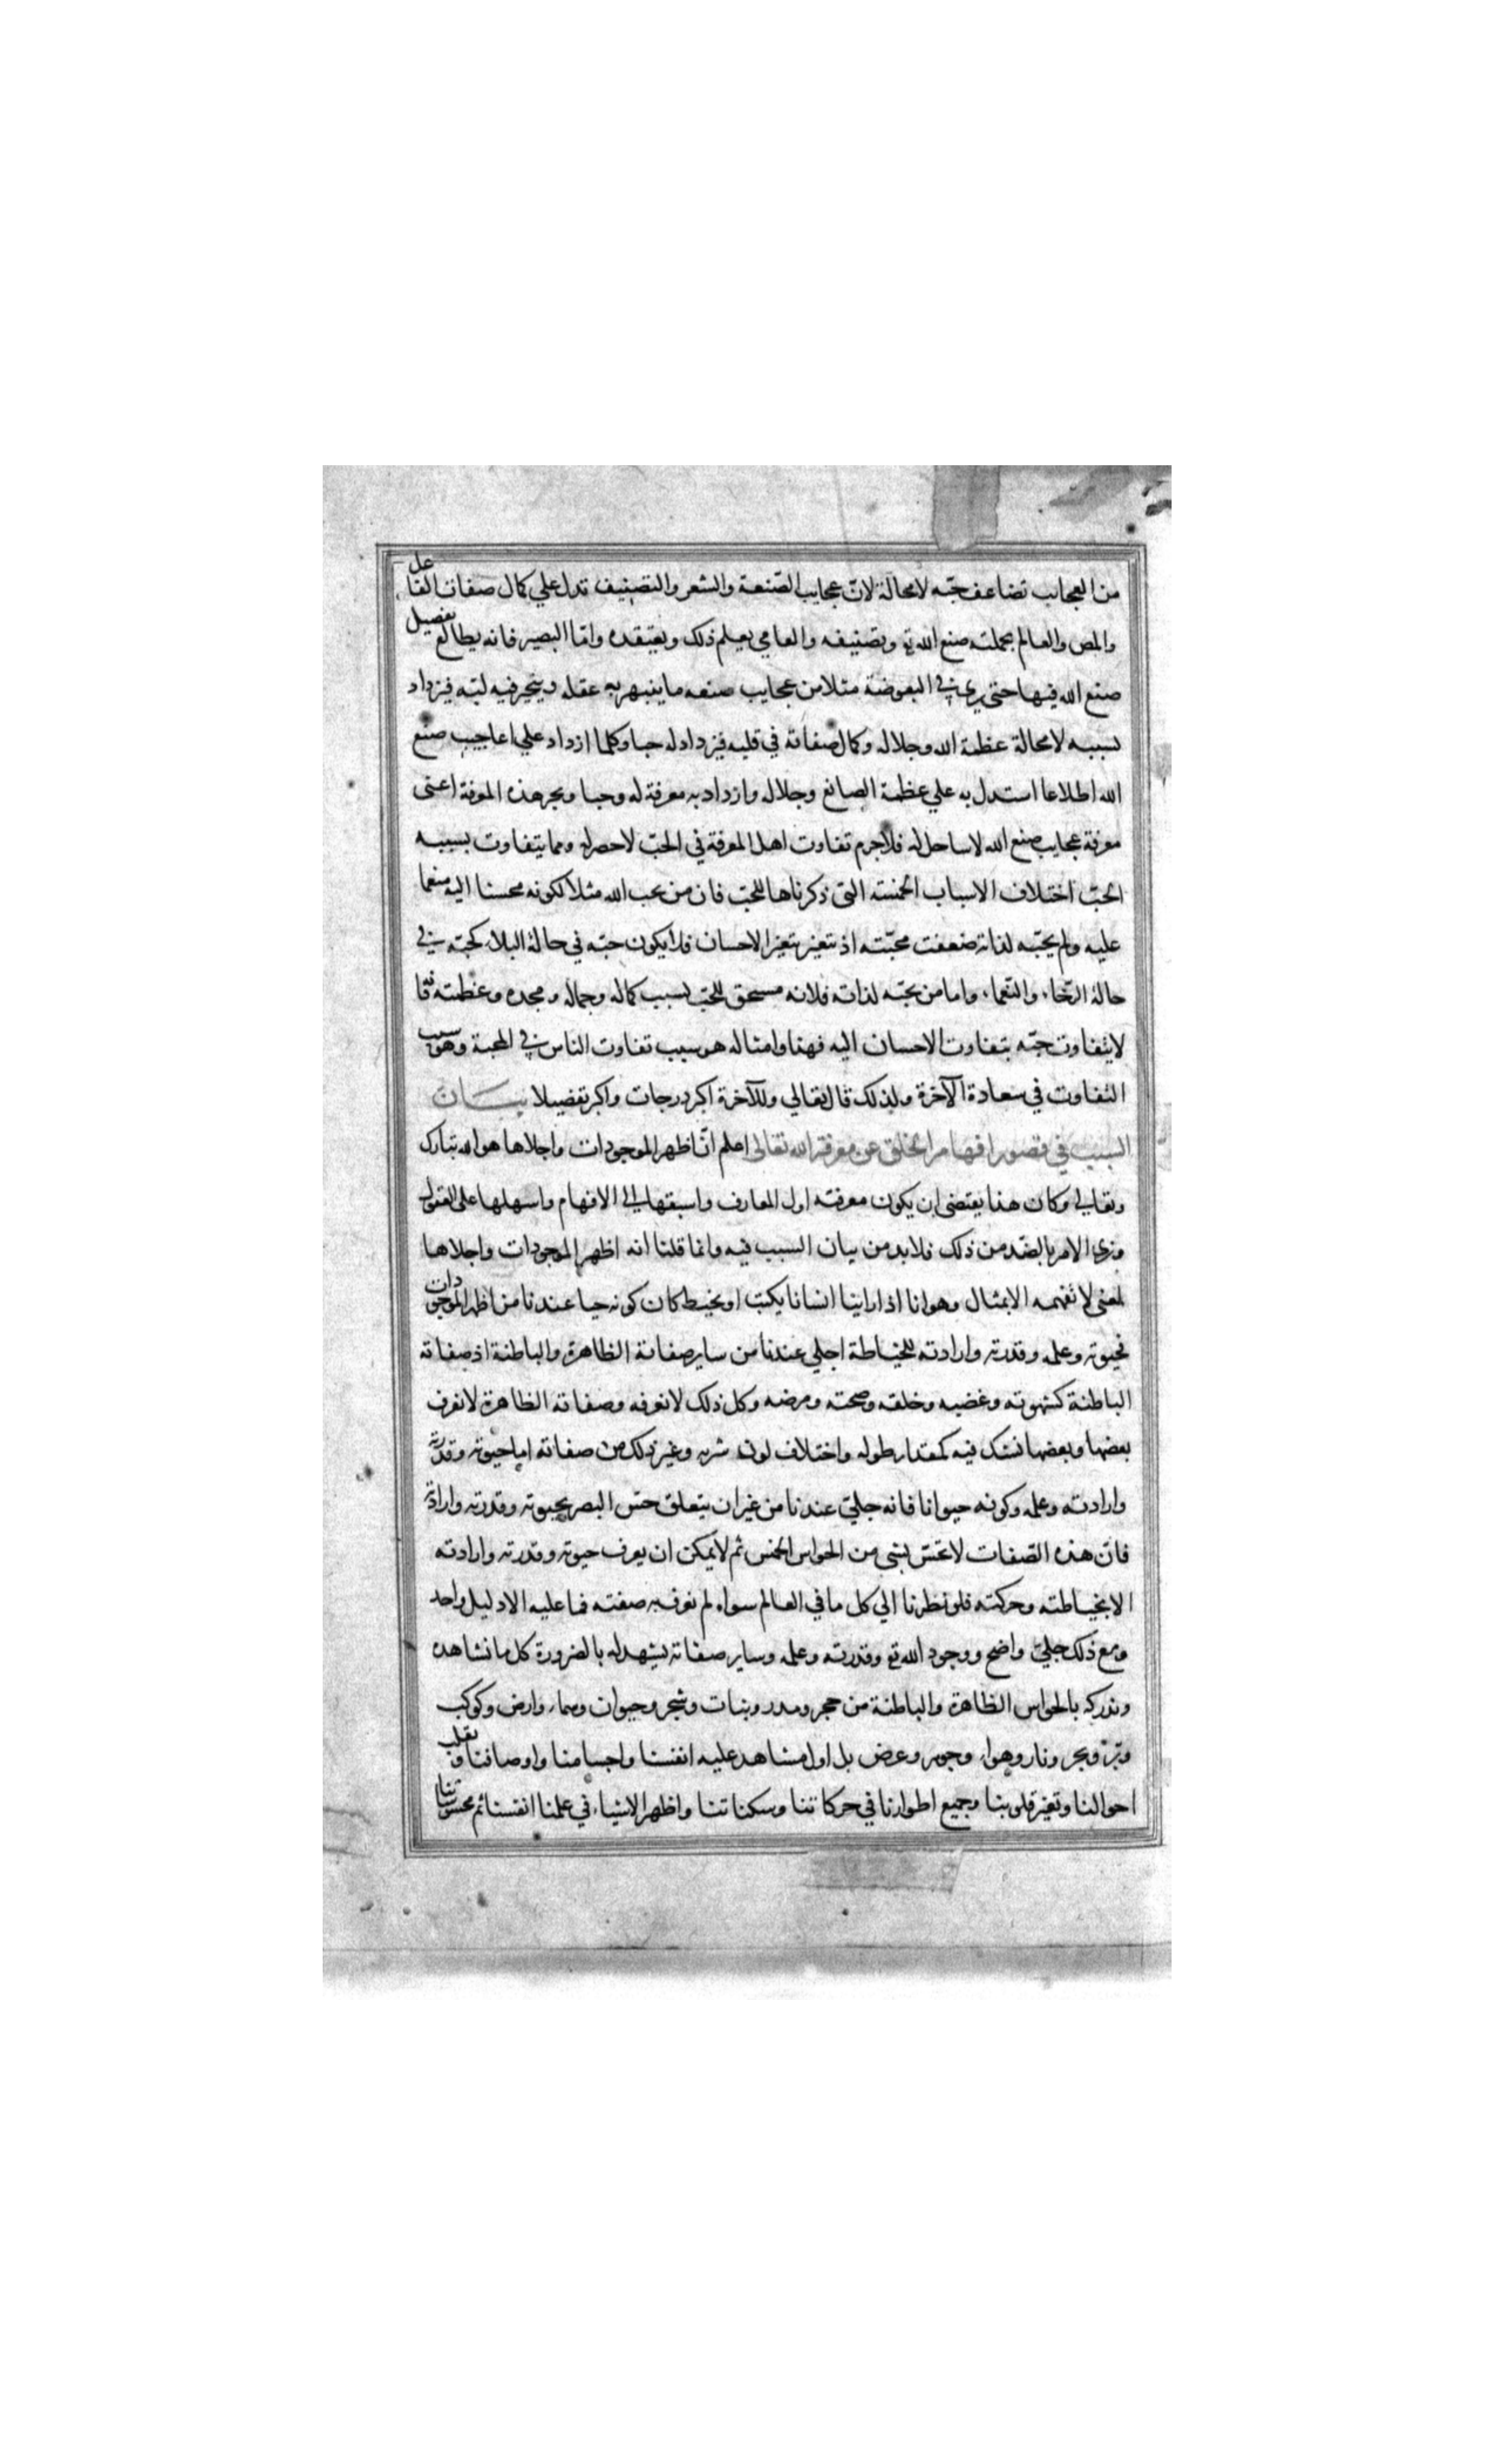 من العجايب تضاعف حبّه لا محالة لانّ عجايب الصّنعة والشعر والتصنيف تدل علي كمال صفات الفاعل
والمص والعالم بجملته صنع الله تع وتصنيفه والعامي يعلم ذلك ويعتقده وامّا البصير فانه يطالع تفصيل
صنع الله فيها حتى يري في البعوضة مثلا من عجايب صنعه ما ينبهر به عقله ويتحير فيه لبّه فيزداد
بسببه لا محالة عظمة الله وجلاله وكمال صفاته في قلبه فيزداد له حبا وكلما ازداد علي اعاجيب صنع
الله اطلاعا استدل به علي عظمة الصانع وجلاله وازداد به معرفة له وحبا وبحر هذه المعرفة اعنى
معرفة عجايب صنع الله لا ساحل له فلا جرم تفاوت اهل المعرفة في الحبّ لا حصر له ومما يتفاوت بسببه
الحبّ اختلاف الاسباب الخمسة التى ذكرناها للحبّ فان من يحب الله مثلا لكونه محسنا اليه منعما
عليه ولم يحبّه لذاته ضعفت محبّته اذ تتغير بتغير الاحسان فلا يكون حبّه في حالة البلاء كحبّه في
حالة الرّخاء والنّعماء واما من يحبّه لذاته فلانه مستحق للحبّ بسبب كماله وجماله ومجده وعظمته فانه
لا يتفاوت حبّه بتفاوت الاحسان اليه فهذا وامثاله هو سبب تفاوت الناس في المحبة وهو سبب
التفاوت في سعادة الآخرة ولذلك قال تعالي وللآخرة اكبر درجات واكبر تفضيلا بيــان
السبب في قصور افهام الخلق عن معرفة الله تعالى اعلم انّ اظهر الموجودات واجلاها هو الله تبارك
وتعالي وكان هذا يقتضى ان يكون معرفته اول المعارف واسبقها الي الافهام واسهلها على العقول
ونري الامر بالضّد من ذلك فلابد من بيان السبب فيه وانما قلنا انه اظهر الموجودات واجلاها
لمعنى لا تفهمه الا بمثال وهو انا اذا راينا انسانا يكتب او يخيط كان كونه حيا عندنا من اظهر الموجودات
فحيوته وعلمه وقدرته وارادته للخياطة اجلي عندنا من ساير صفاته الظاهرة والباطنة اذ صفاته
الباطنة كشهوته وغضبه وخلقه وصحته ومرضه وكل ذلك لا نعرفه وصفاته الظاهرة لا نعرف
بعضها وبعضها نشك فيه كمقدار طوله واختلاف لون بشرته وغير ذلك من صفاته اما حيوته وقدرته
وارادته وعلمه وكونه حيوانا فانه جليّ عندنا من غير ان يتعلق حسّ البصر بحيوته وقدرته وارادته
فانّ هذه الصّفات لا تحسّ بشي من الحواس الخمس ثم لا يمكن ان يعرف حيوته وقدرته وارادته
الا بخياطته وحركته فلو نظرنا الي كل ما في العالم سواه لم نعرف به صفته فما عليه الا دليل واحد
ومع ذلك جليّ واضح ووجود الله تع وقدرته وعلمه وساير صفاته يشهد له بالضرورة كل ما نشاهده
وندركه بالحواس الظاهرة والباطنة من حجر ومدر ونبات وشجر وحيوان وسماء وارض وكوكب
وبرّ وبحر ونار وهواء وجوهر وعرض بل اول مشاهد عليه انفسنا واجسامنا واوصافنا وتقلب
احوالنا وتغير قلوبنا وجميع اطوارنا في حركاتنا وسكناتنا واظهر الاشياء في علمنا انفسنا ثم محسوساتنا